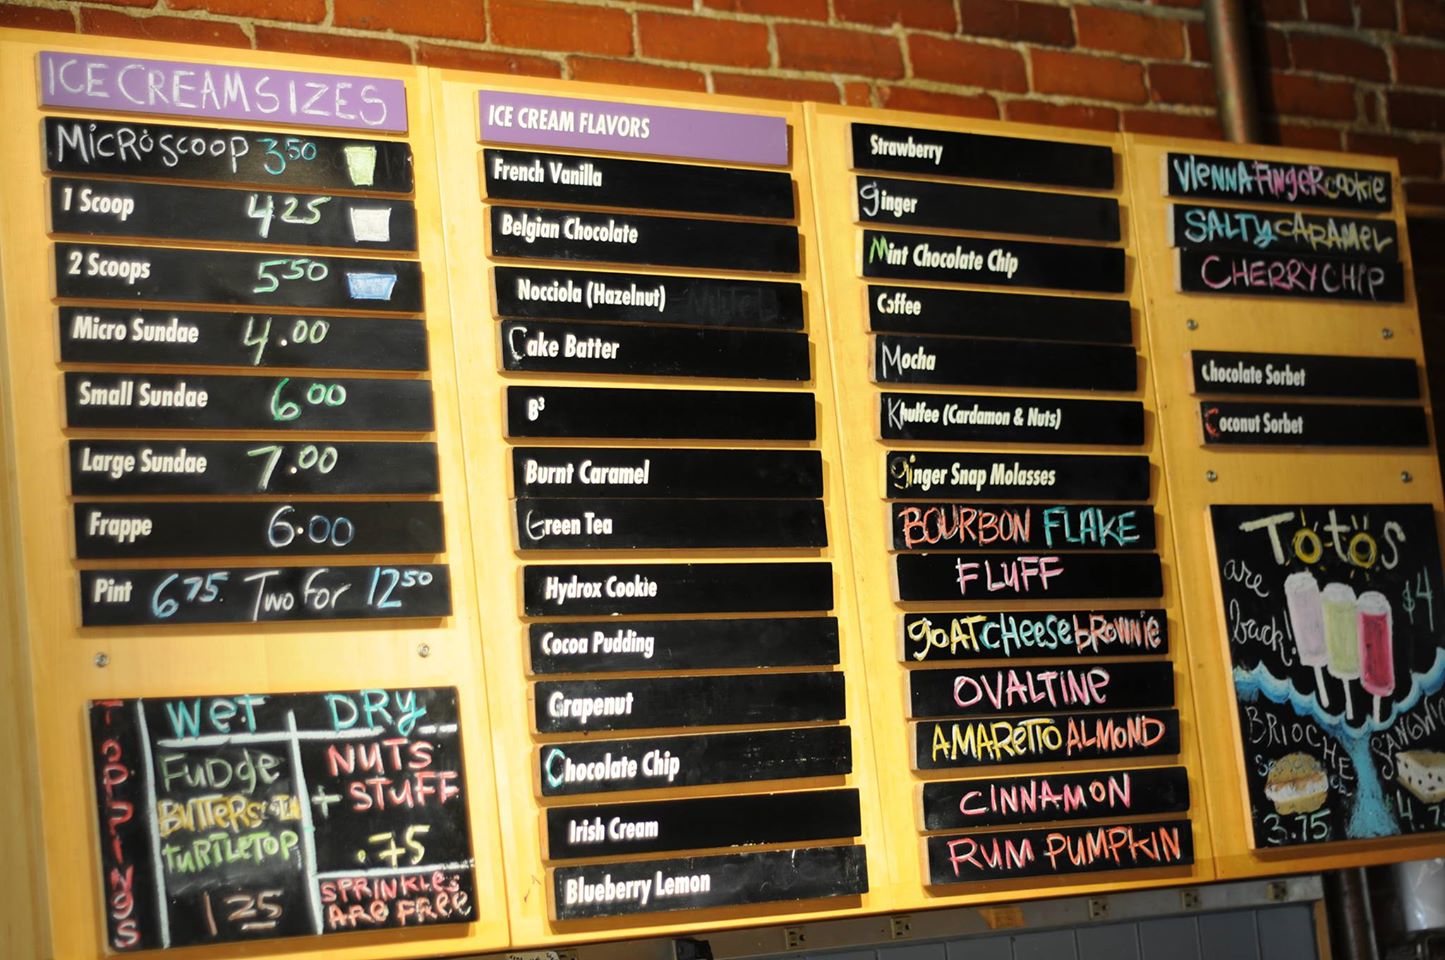 ICE CREAM SIZES
MicRoscoop 3.50
1 Scoop 4 25
2 Scoops 5 50
Micro Sundae 4.00
Small Sundae 6 00
Large Sundae 7.00
Frappe 6.00
Pint 6 75. Two for 12 50
TOPPINGS
WeT
FuDge
BUTTERSCOTCH
TuRTLeTOP
1 25
DRY
NUTS
+ STuFF
.75
SPRiNKLeS
ARe FRee
ICE CREAM FLAVORS
French Vanilla
Belgian Chocolate
Nocciola (Hazelnut)
Cake Batter
B³
Burnt Caramel
Green Tea
Hydrox Cookie
Cocoa Pudding
Grapenut
Chocolate Chip
Irish Cream
Blueberry Lemon
Strawberry
Ginger
Mint Chocolate Chip
Coffee
Mocha
Khulfee (Cardamon & Nuts)
Ginger Snap Molasses
BOURBON FLAKE
FLUFF
gOAT CHeese bROWNiE
OVALTINe
AMAReTTO ALMOND
CINNAMON
RUM PUMPKIN
VIENNA FINgeR cookie
SALTY CARAMEL
CHERRY CHIP
Chocolate Sorbet
Coconut Sorbet
ToToS
are
back!
$4
BRIOCHE
3.75